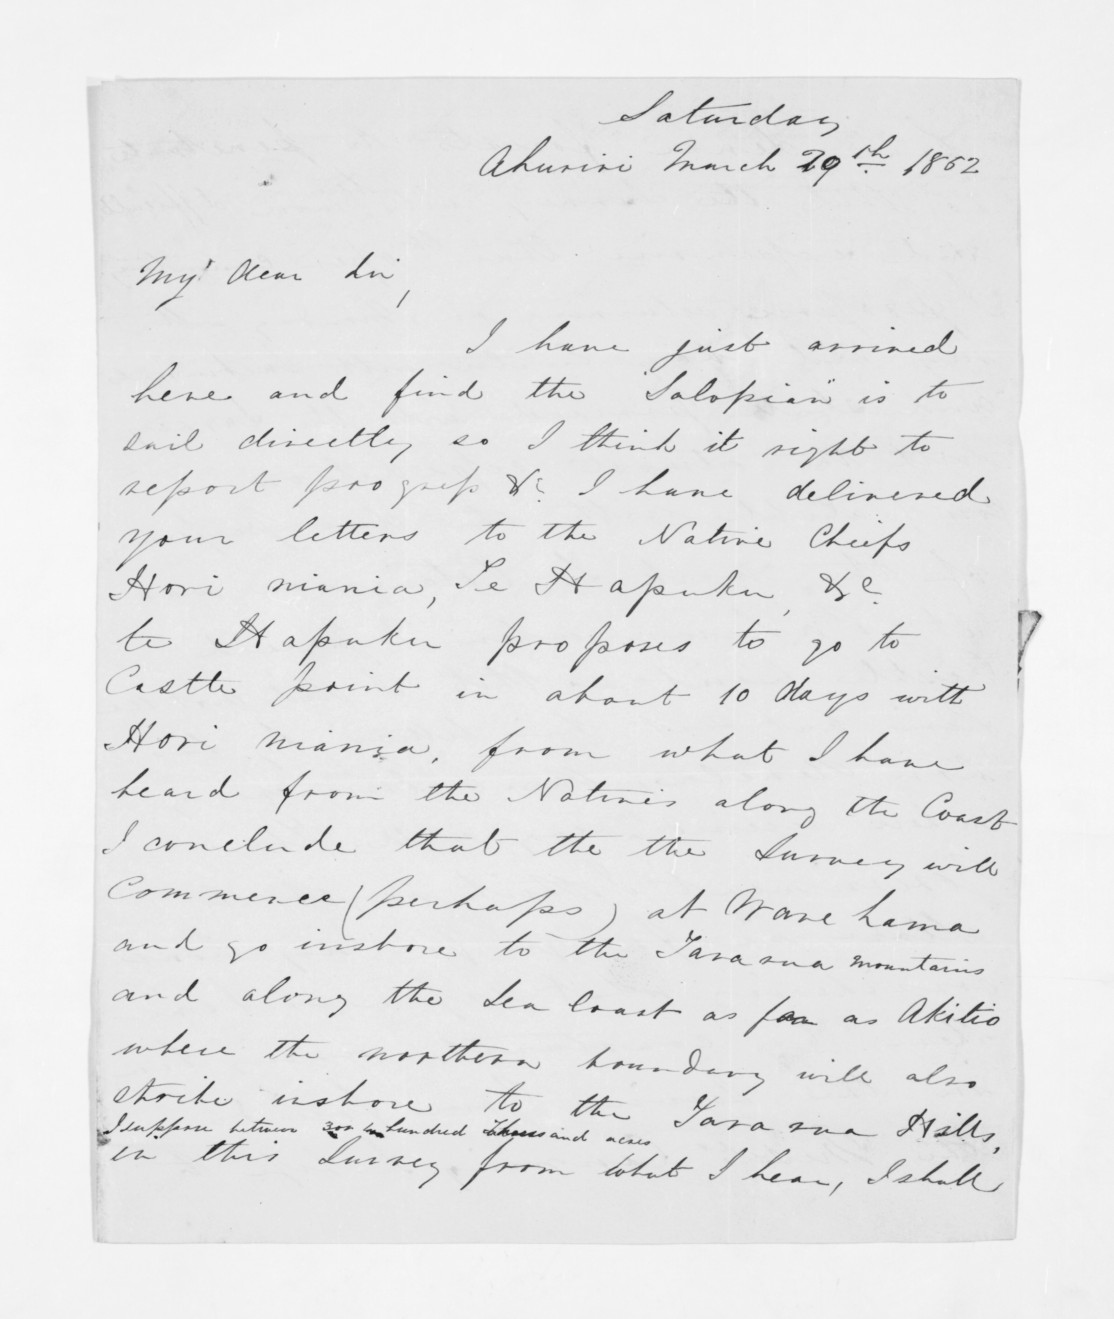 Saturday
Ahuriri March 29th. 1862
My dear Sir,
I have just arrived
here and find the "Salopian" is to
sail directly so I think it right to
report progress &c. I have delivered
your letters to the Native Chiefs
Hori niania, Te Hapuku, &c.
te Hapuku proposes to go to
Castle point in about 10 days with
Hori niania, from what I have
heard from the Natives along the Coast
I conclude that the the Survey will
commence (perhaps) at Ware hama
and go inshore to the Tararua mountains
and along the Sea Coast as far as Akitio
where the northern boundary will also
strike inshore to the Tararua Hills,
I suppose between hundred thousand acres
in this Survey from what I hear, I shall